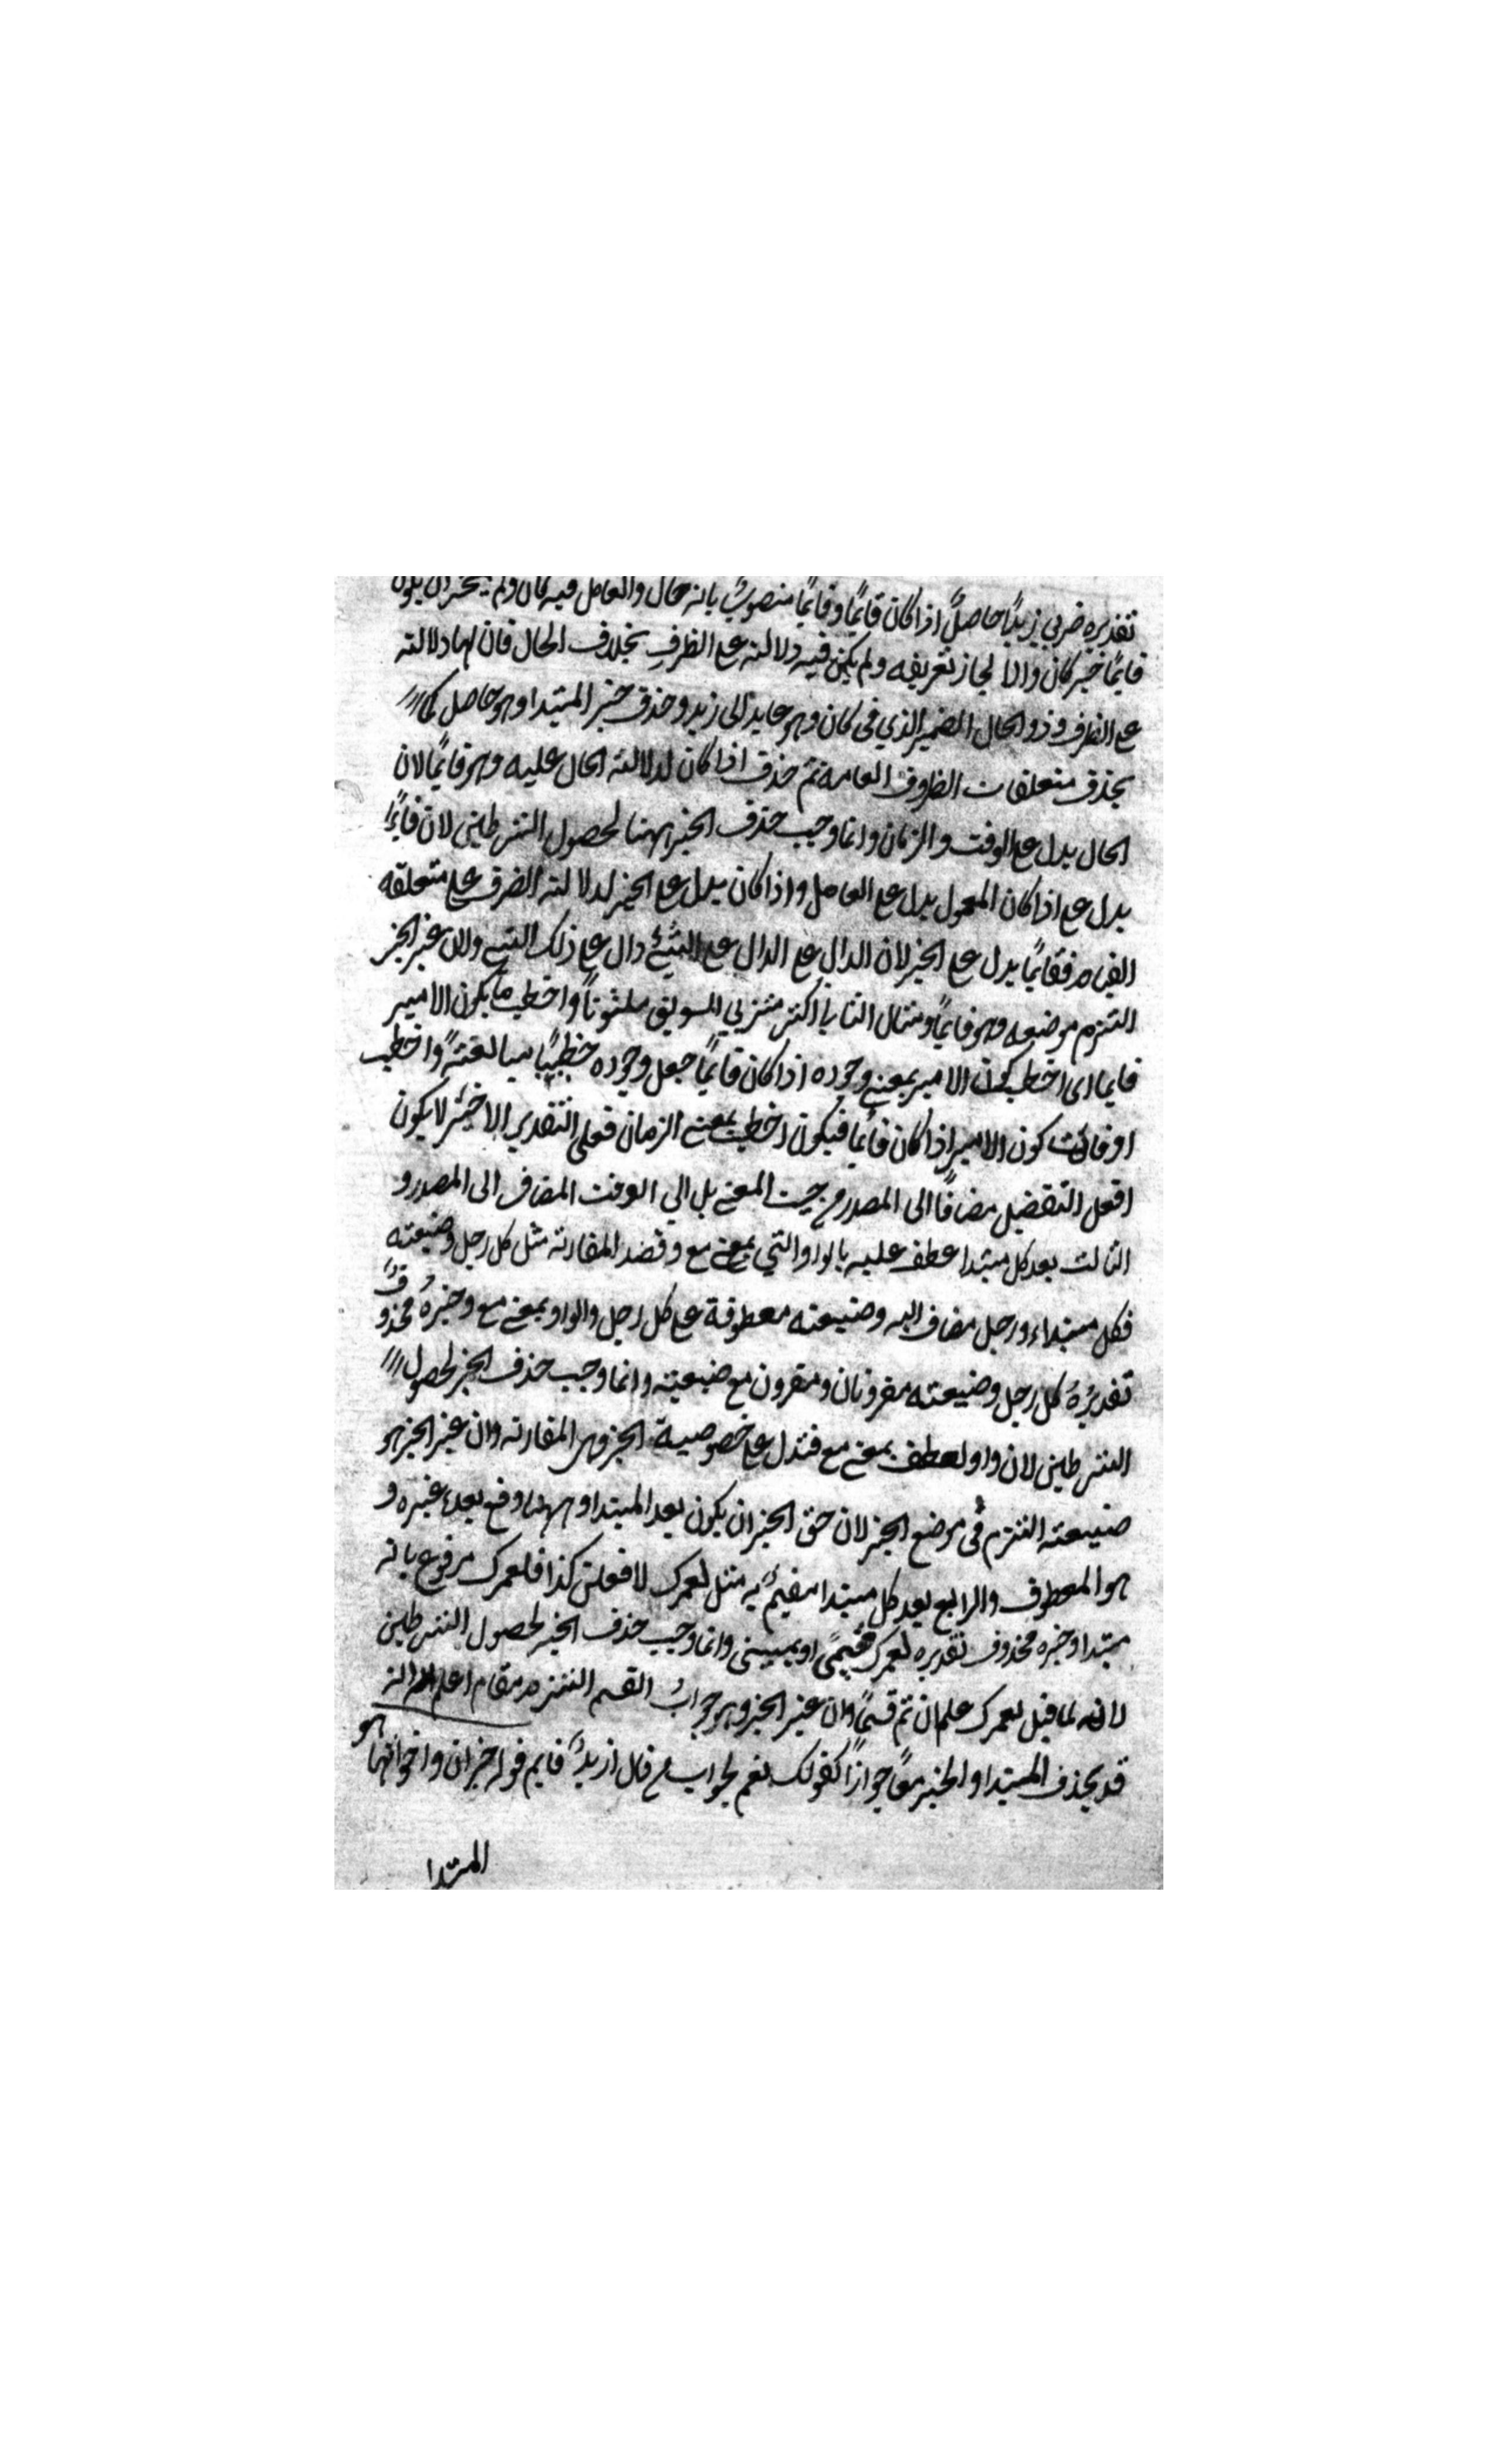 تقديره ضربي زيدًا حاصلٌ اذا كان قايمًا وقايمًا منصوبٌ بانه حال والعامل فيه كان ولم يجز ان يكون
قايمًا خبر كان والا لجاز تعريفه ولم يكن فيه دلالته على الظرف بخلاف الحال فان لها دلالته
على الظرف وذو الحال الضمير الذي في كان وهو عايد الى زيد وحذف خبر المبتدا وهو حاصل كما
يحذف متعلقات الظروف العامه ثم حذف اذا كان لدلالته الحال عليه وهو قايمًا لان
الحال يدل على الوقت والزمان وانما وجب حذف الخبر ههنا لحصول الشرطين لان قايمًا
يدل على اذا كان المعمول يدل على العامل واذا كان يدل على الخبر لدلالته الظرف على متعلقه
فقايمًا يدل على الخبر لان الدال على الدال على الشئ دال على ذلك الشئ ولان غير الخبر
التزم موضعه وهو قايمًا ومثال الثاني اكثر شربي السويق ملتوتًا واخطب ما يكون الامير
قايما اى اخطب كون الامير بمعنى وجوده اذا كان قايمًا جعل وجوده خطيبًا مبالغتهً واخطب
اوقات كون الامير اذا كان قايما فيكون اخطب بمعنى الزمان فعلى التقدير الاخير لا يكون
افعل التفضيل مضافًا الى المصدر من حيث المعنى بل الي الوقت المضاف الى المصدر و
الثالث بعد كل مبتدا عطف عليه بالواو التي بمعنى مع وقصد المقارنة مثل كل رجل وضيعته
فكل مبتداء ورجل مضاف اليه وضيعته معطوفة على كل رجل والواو بمعنى مع وخبرهُ محذوفٌ
تقديرُهُ كل رجل وضيعته مقرونان ومقرون مع ضيعته وانما وجب حذف الخبر لحصول
الشرطين لان واو العطف بمعنى مع فتدل على خصوصية الخبر وهى المقارنه وان غير الخبر هو
ضيعته التزم في موضع الخبر لان حق الخبر ان يكون بعد المبتدا وههنا وقع بعده غيره و
هو المعطوف والرابع بعد كل مبتدا مقسمٌ به مثل لعمرك لافعلن كذا فلعمرك مرفوع بانه
مبتدا وخبره محذوف تقديره لعمرك قسمي او يميني وانما وجب حذف الخبر لحصول الشرطين
لانه لما قيل لعمرك علم ان ثم قسمًا وان غير الخبر وهو جوابُ القسم التزم مقام اعلم انه
قد يحذف المبتدا والخبر معًا جوازًا كقولك نعم لجواب من قال ازيدٌ قايم قوله خبر ان واخواتها هو
المبتدا